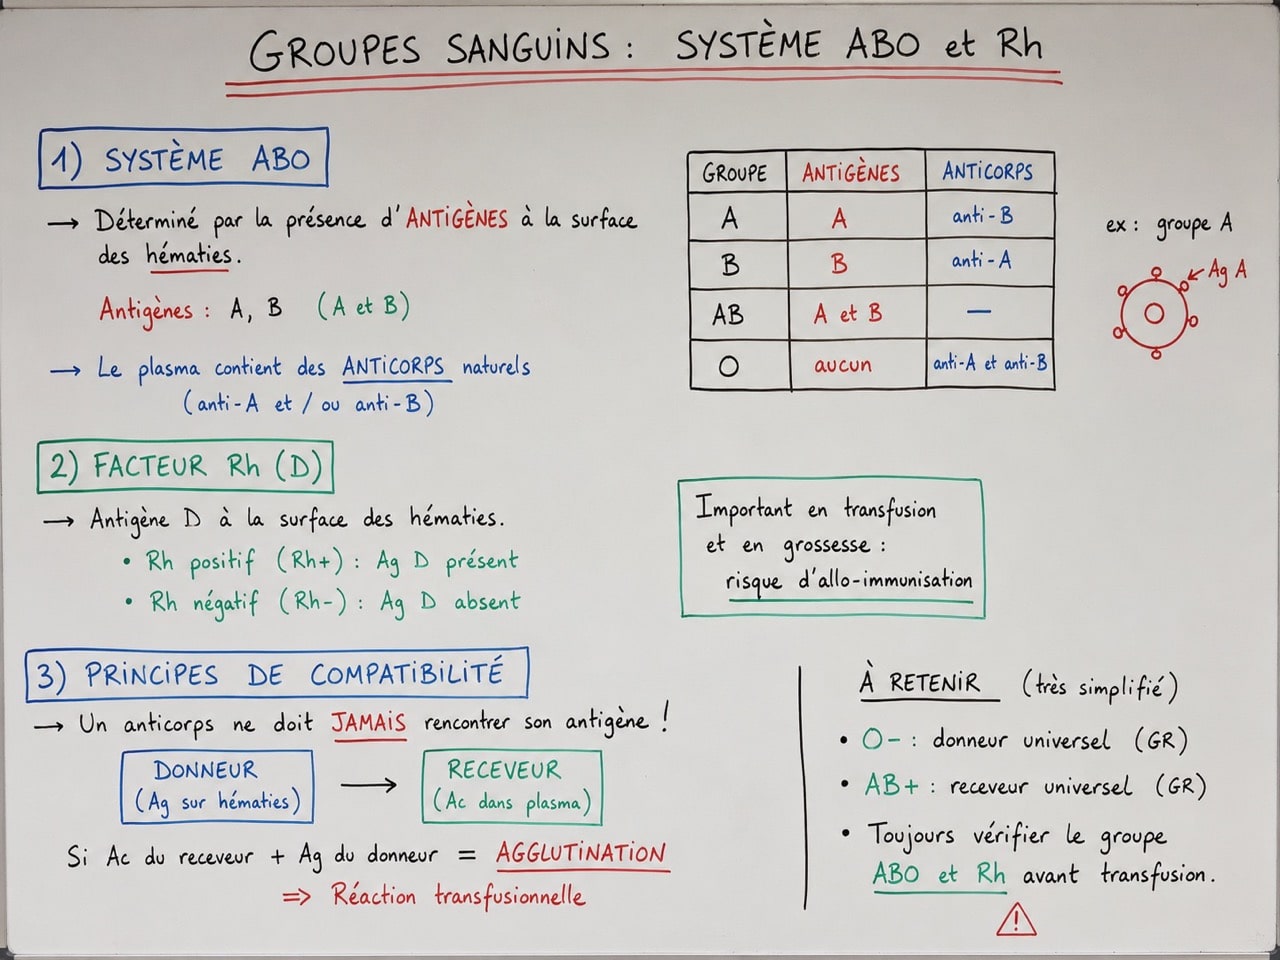 GROUPES SANGUINS : SYSTÈME ABO et Rh
1) SYSTÈME ABO
→ Déterminé par la présence d'ANTIGÈNES à la surface
des hématies.
Antigènes : A, B (A et B)
→ Le plasma contient des ANTICORPS naturels
(anti-A et / ou anti-B)
GROUPE ANTIGÈNES ANTICORPS
A A anti-B
B B anti-A
AB A et B —
O aucun anti-A et anti-B
ex : groupe A
Ag A
2) FACTEUR Rh (D)
→ Antigène D à la surface des hématies.
• Rh positif (Rh+) : Ag D présent
• Rh négatif (Rh-) : Ag D absent
Important en transfusion
et en grossesse :
risque d'allo-immunisation
3) PRINCIPES DE COMPATIBILITÉ
→ Un anticorps ne doit JAMAIS rencontrer son antigène !
DONNEUR
(Ag sur hématies)
→
RECEVEUR
(Ac dans plasma)
Si Ac du receveur + Ag du donneur = AGGLUTINATION
⇒ Réaction transfusionnelle
À RETENIR (très simplifié)
• O- : donneur universel (GR)
• AB+ : receveur universel (GR)
• Toujours vérifier le groupe
ABO et Rh avant transfusion.
!